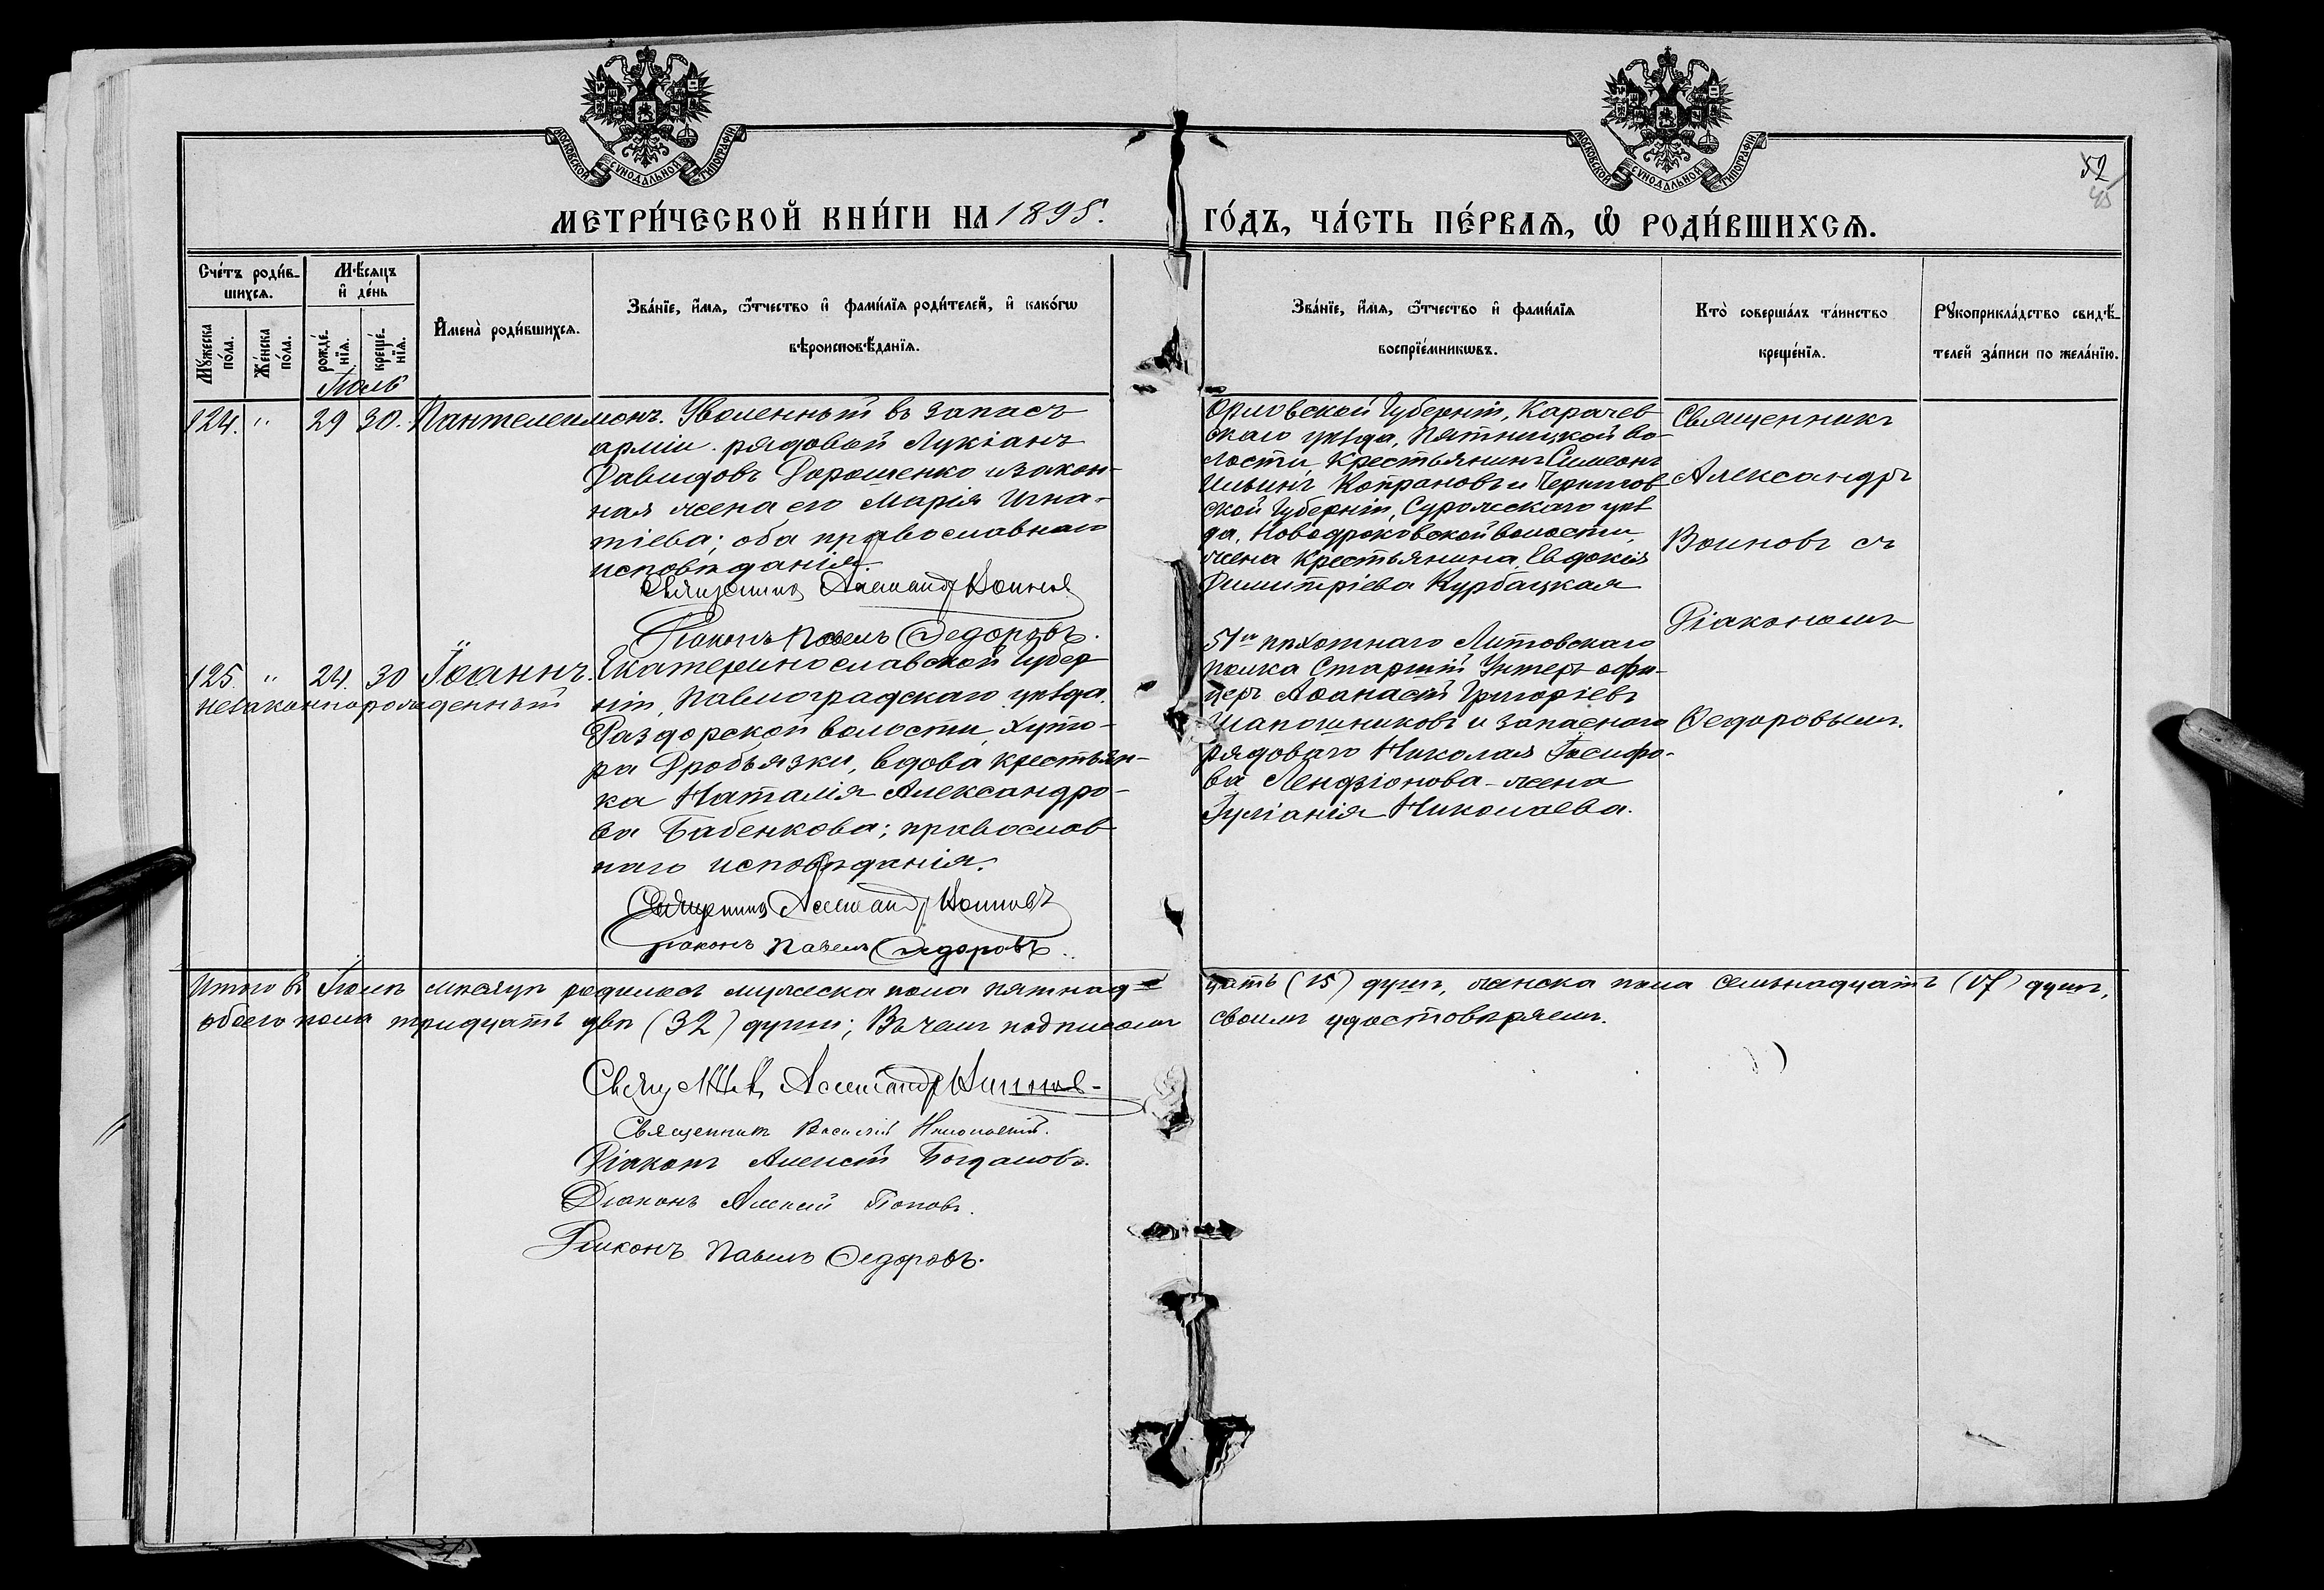 МОСКОВСКОЙ СѴНОДАЛЬНОЙ ТИПОГРАФІИ
МОСКОВСКОЙ СѴНОДАЛЬНОЙ ТИПОГРАФІИ
52
45
МЕТРИ́ЧЕСКОЙ КНИ́ГИ НА 1895. ГО́ДЪ, ЧА́СТЬ ПЕ́РВАѦ, Ѡ҆ РОДИ́ВШИХСѦ.
Сче́тъ роди́в-
шихсѧ.
Мꙋ́жеска по́ла.
Же́нска по́ла.
Мѣ́сѧцъ
и҆ де́нь
рожде́нїѧ.
креще́нїѧ.
И҆мена̀ роди́вшихсѧ.
Зва́нїе, и҆́мѧ, ѻ҆́тчество и҆ фами́лїѧ роди́телей, и҆ како́гѡ
вѣроисповѣ́данїѧ.
Зва́нїе, и҆́мѧ, ѻ҆́тчество и҆ фами́лїѧ
воспрїе́мникѡвъ.
Кто̀ соверша́лъ та́инство
креще́нїѧ.
Рꙋкоприкла́дство свидѣ́-
телей за́писи по жела́нїю.
Іюль
124. " 29 30. Пантелеимонъ. Уволенный въ запасъ
арміи рядовой Лукіанъ
Давидовъ Дорошенко и закон-
ная жена его Марія Игна-
тіева; оба православнаго
исповѣданія.
Священникъ Александръ Воиновъ
Діаконъ Павелъ Ѳедоровъ.
Орловской Губерніи, Карачев-
скаго уѣзда, Пятницкой во-
лости, Крестьянинъ Симеонъ
Ильинъ Копрановъ и Чернигов-
ской Губерніи, Суражскаго уѣз-
да, Новодроковской волости,
жена Крестьянина, Евдокія
Димитріева Курбацкая
Священникъ
Александръ
Воиновъ съ
Діакономъ
Ѳедоровымъ.
125. " 24. 30 Іоаннъ. Екатеринославской Губер-
незаконнорожденный
ніи, Павлоградскаго уѣзда.
Раздорской волости, хуто-
ра Дробьязки, вдова крестьян-
ка Наталія Александро-
ва Бабенкова; православ-
наго исповѣданія.
Священникъ Александръ Воиновъ
Діаконъ Павелъ Ѳедоровъ.
51го пѣхотнаго Литовскаго
полка Старшій Унтеръ офи-
церъ Аѳанасій Григоріевъ
Шапошниковъ и запаснаго
рядоваго Николая Іосифо-
ва Лендзіонова - жена
Іуліанія Николаева.
Итого въ Іюлѣ мѣсяцѣ родилось мужеска пола пятнад=цать (15) душъ, женска пола семьнадцать (17) душъ,
обоего пола тридцать двѣ (32) души; Въ чемъ подписомъ своимъ удостовѣряемъ.
Священникъ Александръ Воиновъ
Священникъ Василій
Діаконъ Алексій Богдановъ.
Діаконъ Алексій Поповъ.
Діаконъ Павелъ Ѳедоровъ.